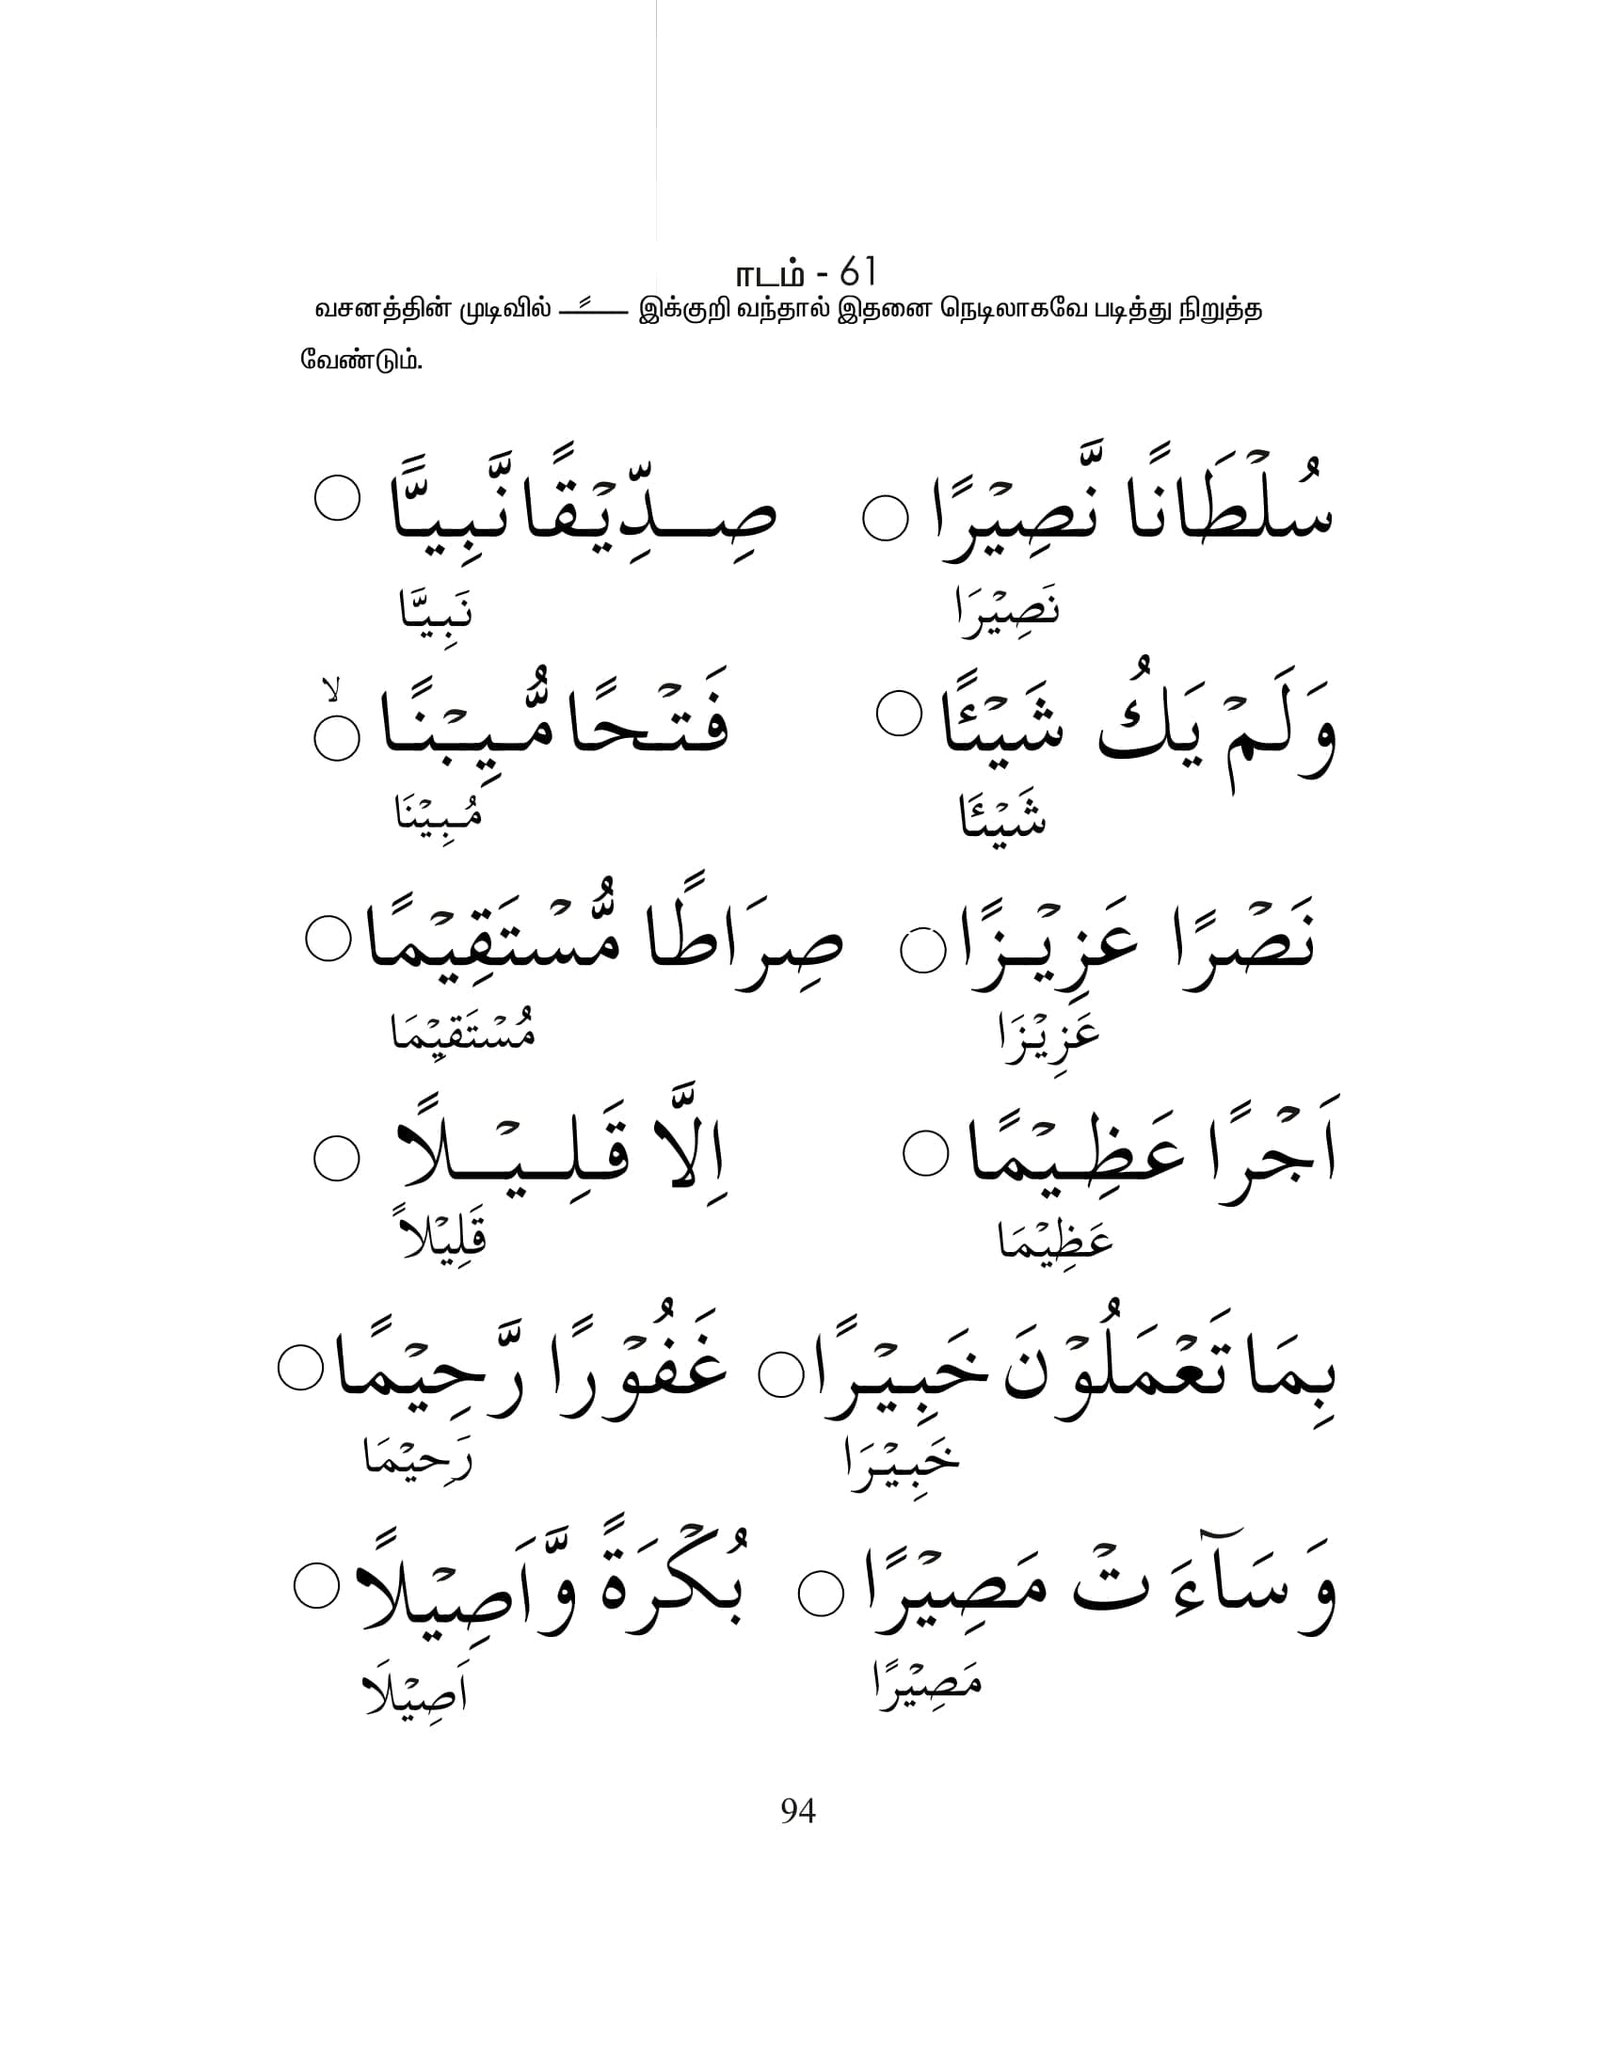 ாடம் - 61
வசனத்தின் முடிவில் ـــًـــ இக்குறி வந்தால் இதனை நெடிலாகவே படித்து நிறுத்த
வேண்டும்.
سُلْطَانًا نَّصِيْرًا ○ صِدِّيْقًا نَّبِيًّا ○
نَصِيْرَا نَبِيَّا
وَلَمْ يَكُ شَيْئًا ○ فَتْحًا مُّبِيْنًا ○ ۙ
شَيْئَا مُبِيْنَا
نَصْرًا عَزِيْزًا ○ صِرَاطًا مُّسْتَقِيْمًا ○
عَزِيْزَا مُسْتَقِيْمَا
اَجْرًا عَظِيْمًا ○ اِلَّا قَلِيْلًا ○
عَظِيْمَا قَلِيْلاً
بِمَا تَعْمَلُوْنَ خَبِيْرًا ○ غَفُوْرًا رَّحِيْمًا ○
خَبِيْرَا رَحِيْمَا
وَسَآءَتْ مَصِيْرًا ○ بُكْرَةً وَّاَصِيْلًا ○
مَصِيْرًا اَصِيْلَا
94